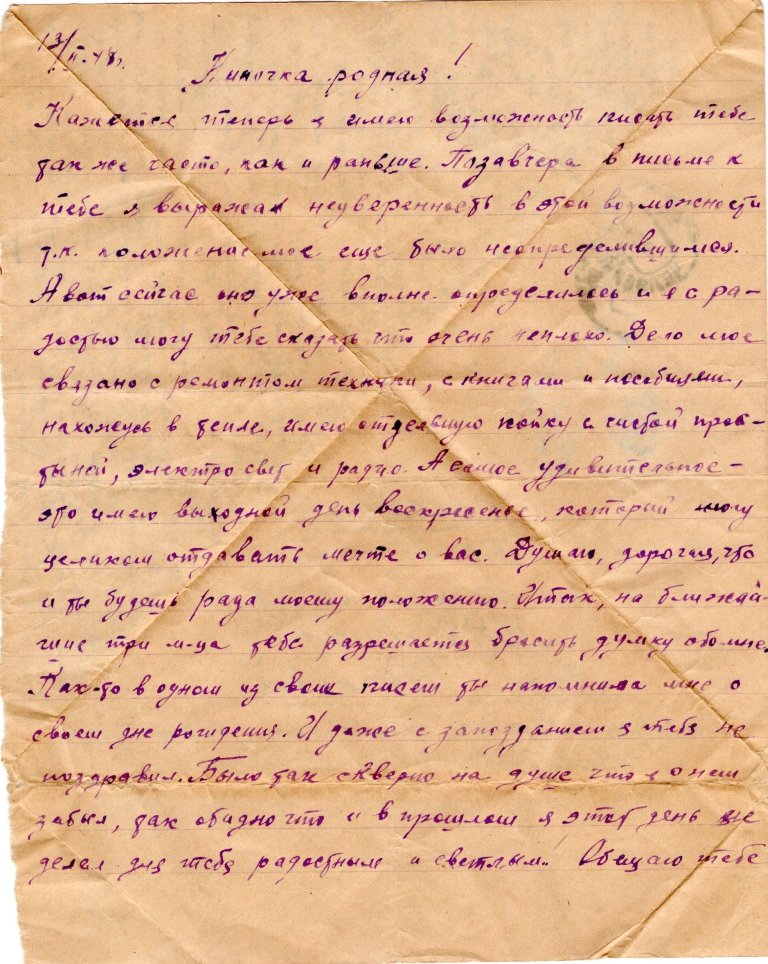 13/II-47г.
Ниночка родная!
Кажется теперь я имею возможность писать тебе
так же часто, как и раньше. Позавчера в письме к
тебе я выражал неуверенность в этой возможности
т.к. положение мое еще было неопределившимся.
А вот сейчас оно уже вполне определилось и я с ра-
достью могу тебе сказать что очень неплохо. Дело мое
связано с ремонтом техники, с книгами и пособиями,
нахожусь в тепле, имею отдельную койку с чистой прос-
тыней, электро свет и радио. А самое удивительное -
это имею выходной день воскресенье, который могу
целиком отдавать мечте о вас. Думаю, дорогая, что
и ты будешь рада моему положению. Итак, на ближай-
шие три м-ца тебе разрешается бросить думку обо мне.
Как-то в одном из своих писем ты напомнила мне о
своем дне рождения. И даже с запозданием я тебя не
поздравил. Было так скверно на душе что я о нем
забыл, так обидно что и в прошлом я этот день не
делал для тебя радостным и светлым! Обещаю тебе